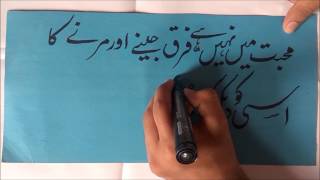 محبت میں نہیں ہے فرق جینے اور مرنے کا
اسی کو دیکھ